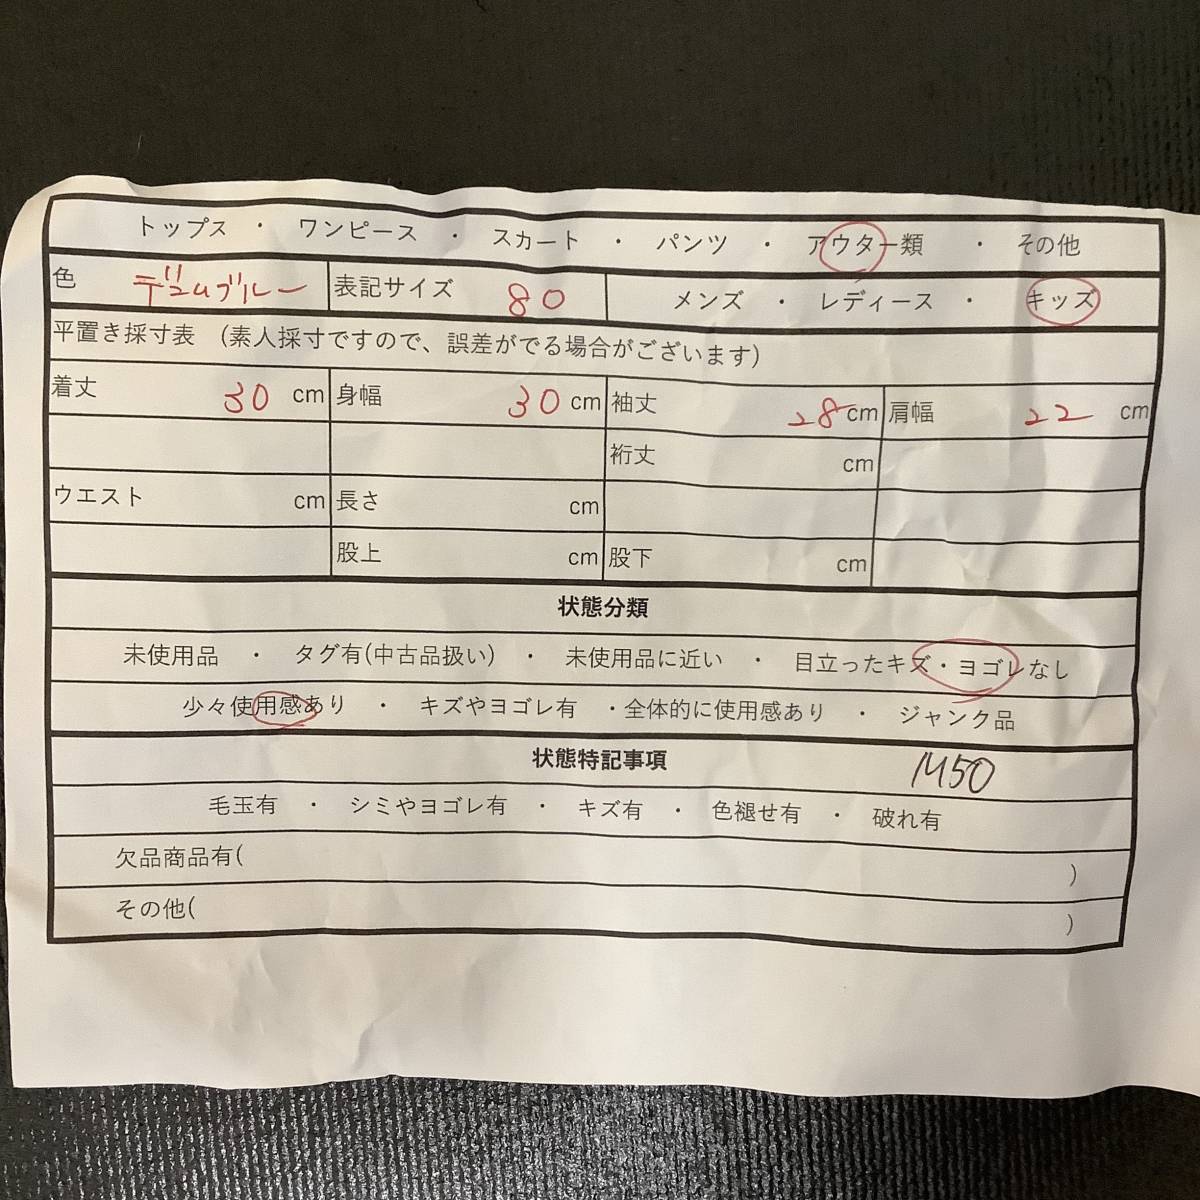 トップス ・ ワンピース ・ スカート ・ パンツ ・ アウター類 ・ その他
色 デニムブルー 表記サイズ 80 メンズ ・ レディース ・ キッズ
平置き採寸表 (素人採寸ですので、誤差がでる場合がございます)
着丈 30 cm 身幅 30 cm 袖丈 28 cm 肩幅 22 cm
裄丈 cm
ウエスト cm 長さ cm
股上 cm 股下 cm
状態分類
未使用品 ・ タグ有(中古品扱い) ・ 未使用品に近い ・ 目立ったキズ・ヨゴレなし
少々使用感あり ・ キズやヨゴレ有 ・全体的に使用感あり ・ ジャンク品
状態特記事項 M50
毛玉有 ・ シミやヨゴレ有 ・ キズ有 ・ 色褪せ有 ・ 破れ有
欠品商品有( )
その他( )